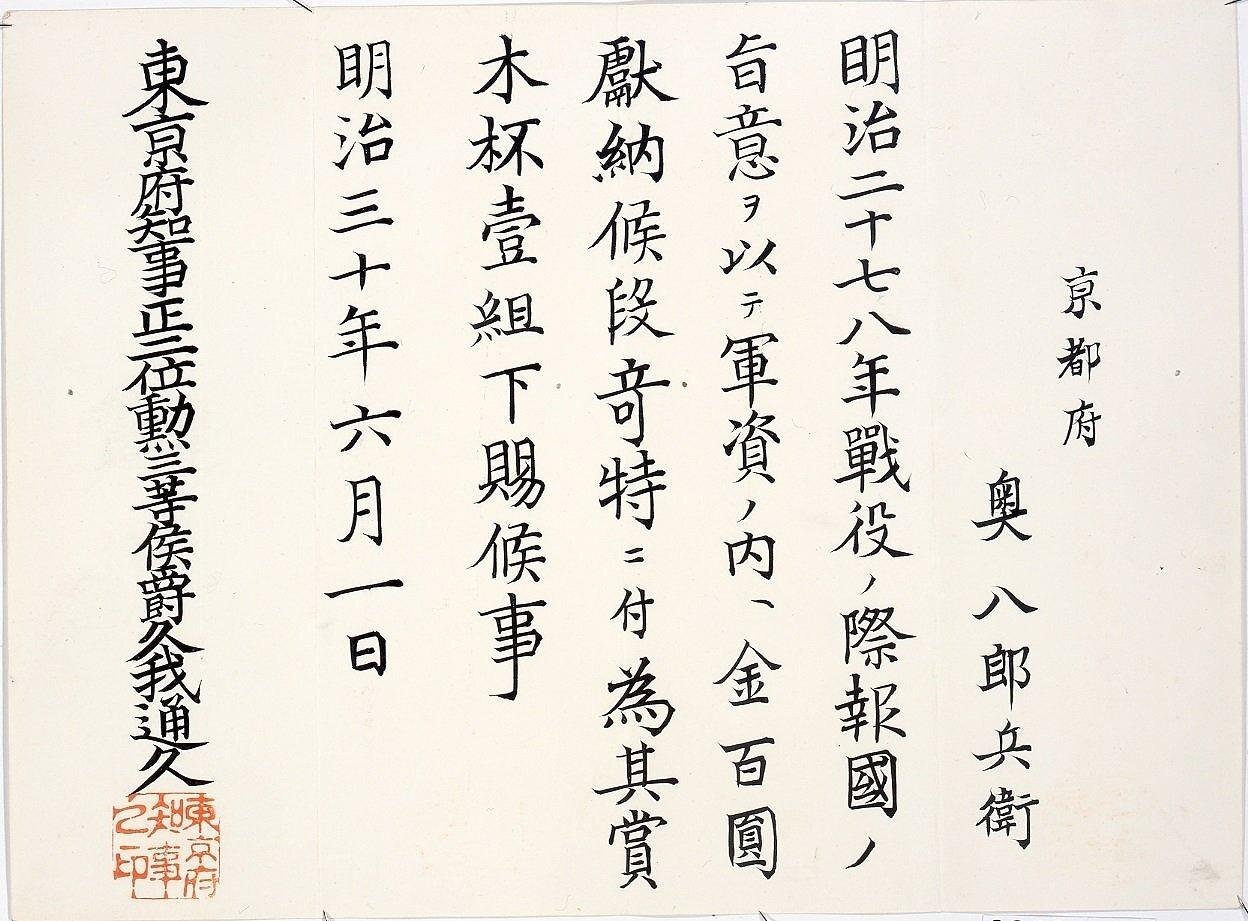 京都府
奥八郎兵衛
明治二十七八年戰役ノ際報國ノ
旨意ヲ以テ軍資ノ内ヘ金百圓
獻納候段竒特ニ付為其賞
木杯壹組下賜候事
明治三十年六月一日
東京府知事正二位勲三等侯爵久我通久
東京府
知事
之印